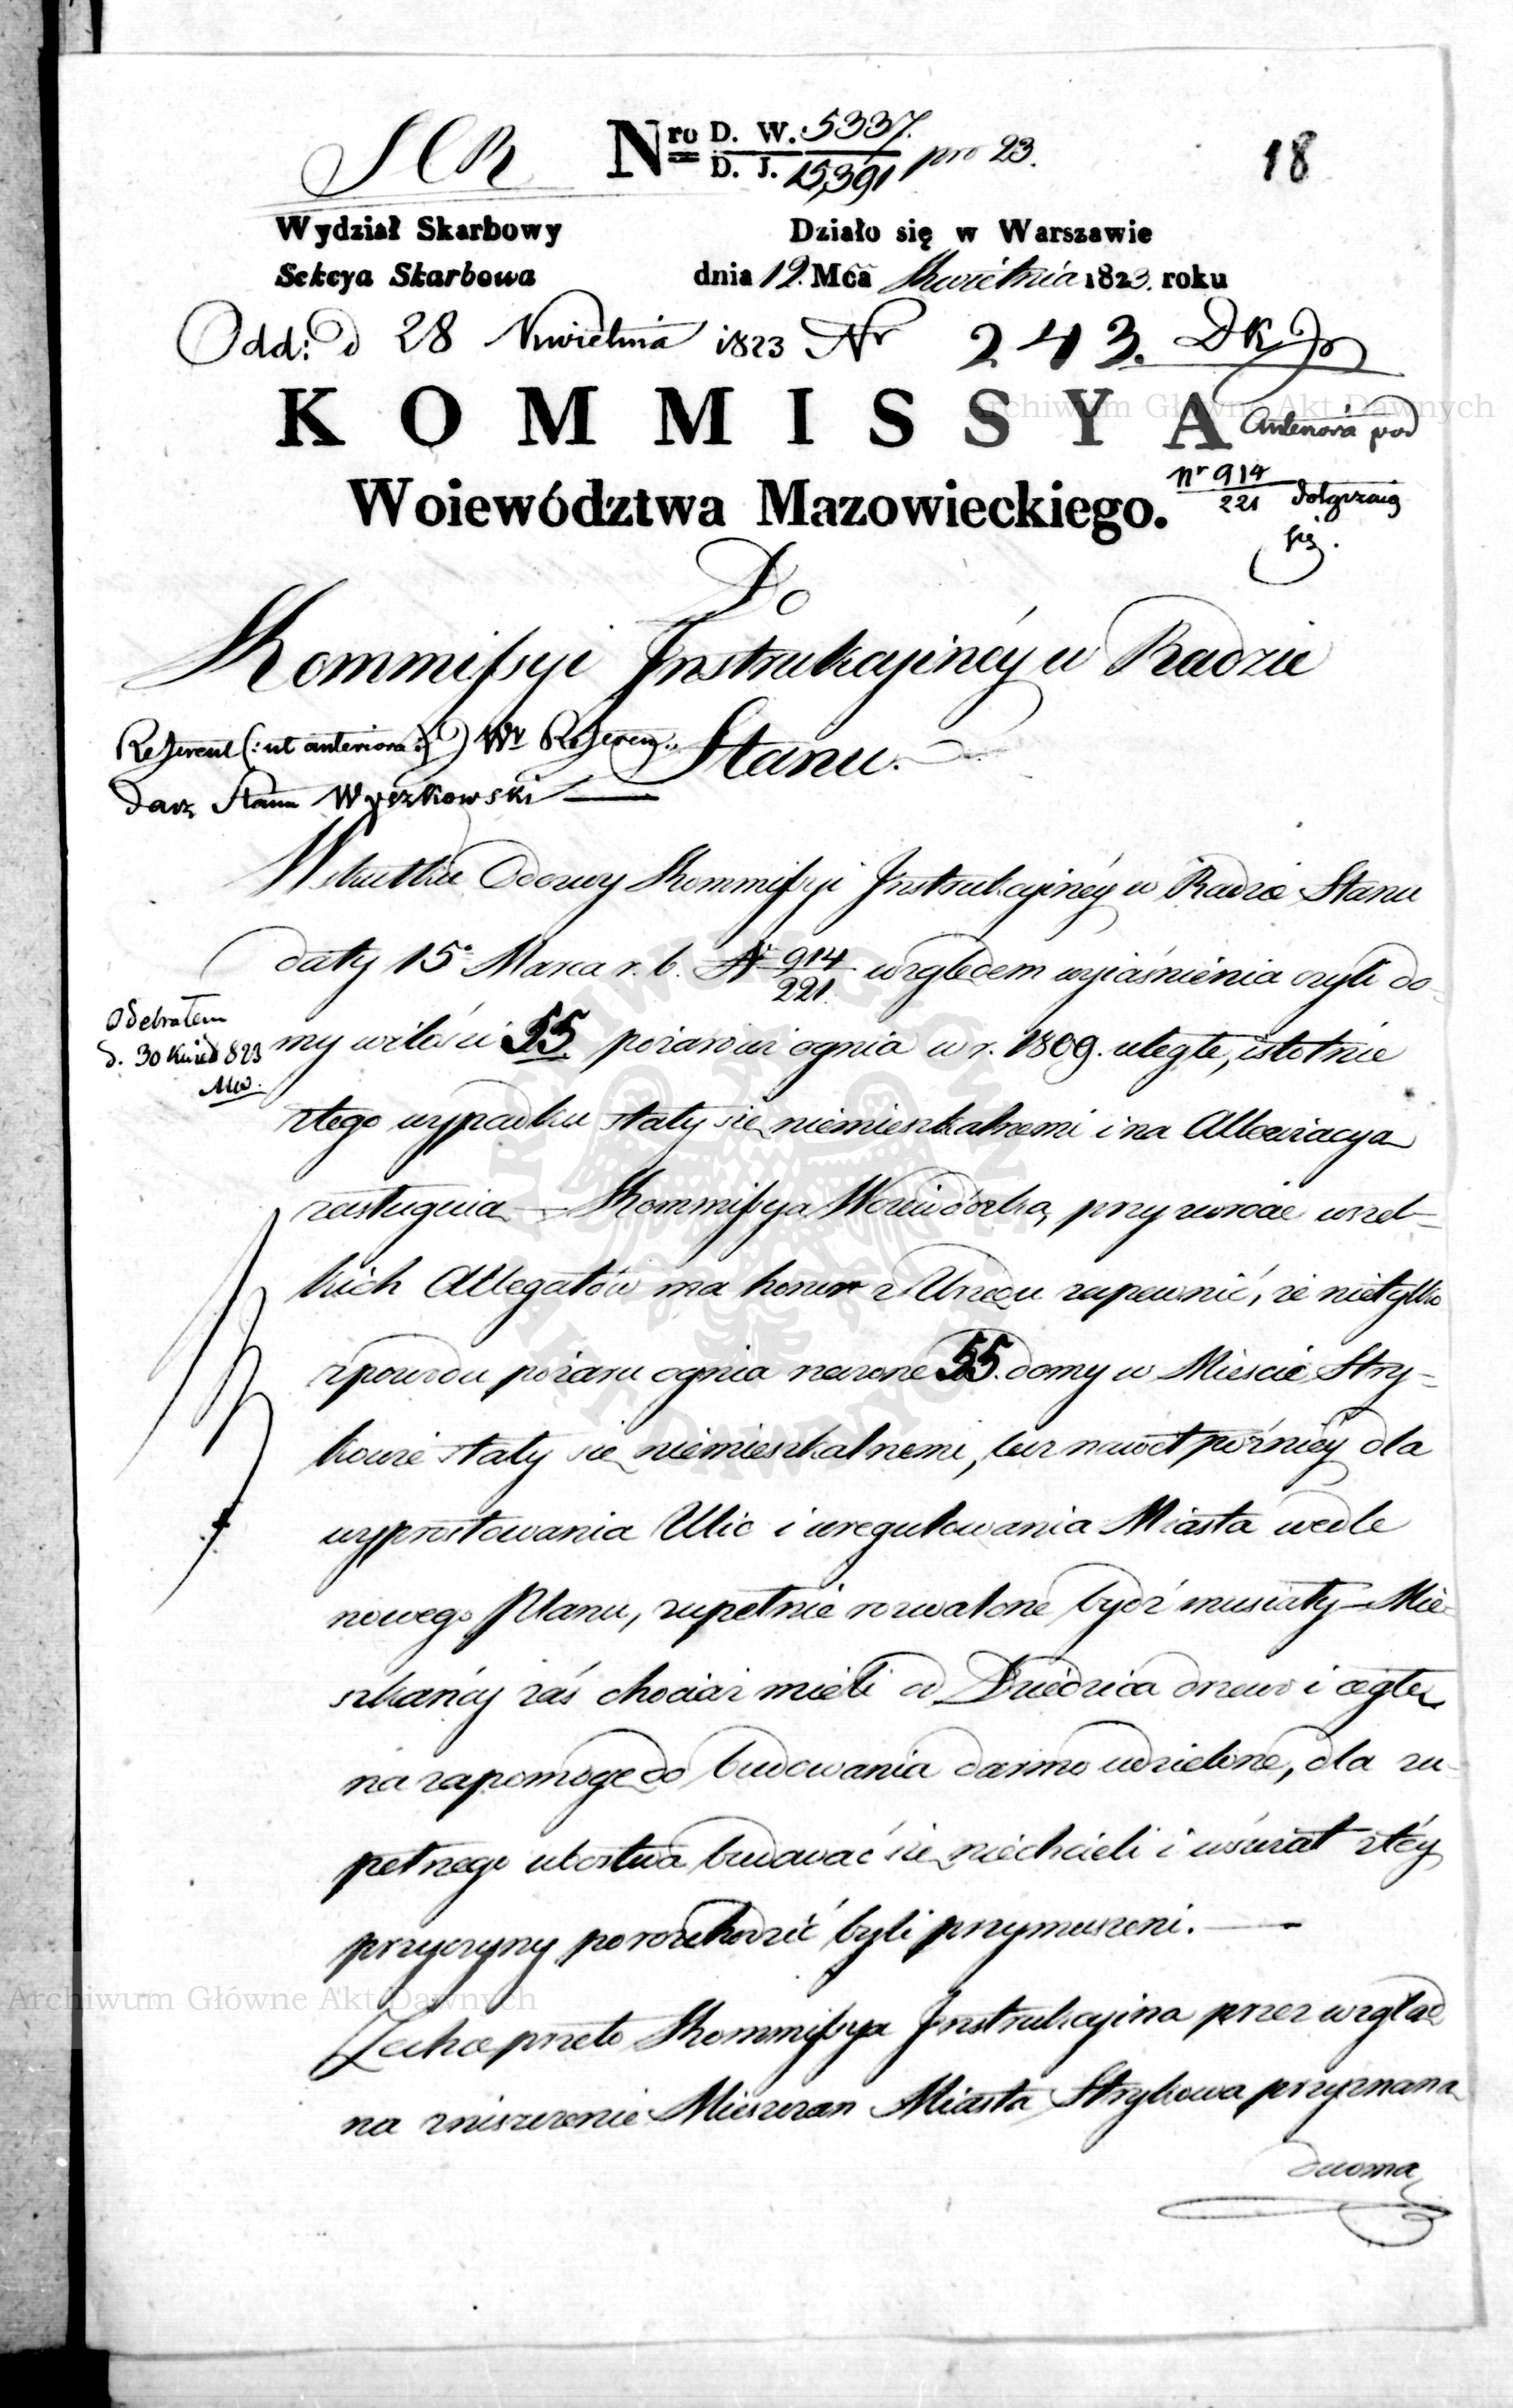 SCR Nro D. W. 5337. / D. J. 15,391 pro 23.
18
Wydział Skarbowy
Sekcya Skarbowa
Działo się w Warszawie
dnia 12. Mca Kwietnia 1823. roku
Odd: d 28 Kwietnia 1823 Nr 243. DKJ
KOMMISSYA
Archiwum Główne Akt Dawnych
Anteriora pod
Nr 914/221 dołączaią
się.
Woiewództwa Mazowieckiego.
Do
Kommissyi Instrukcyinéy w Radzie
Stanu.
Referent (: ut anteriora :) Wy Referen„
darz Stanu Wyczkowski
Wskutku Odezwy Kommissyi Instrukcyinéy w Radzie Stanu
daty 15o Marca r. b. Nr 914/221. względem wyiaśnienia czyli do-
my w ilości 55 pożarowi ognia w r. 1809. uległe, istotnie
Odebrałem
d. 30 Kwiet 823
MW.
ztego wypadku stały się niemieszkalnemi i na Allewiacyą
zasługuią – Kommissya Woiewódzka, przy zwrocie wszel-
kich Allegatów ma honor z Urzędu zapewnić, że nietylko
zpowodu pożaru ognia rzeczone 55. domy w Mieście Stry-
kowie stały się niemieszkalnemi, lecz nawet późniéy dla
wyprostowania Ulic i uregulowania Miasta wedle
nowego Planu, zupełnie rozwalone bydź musiały – Mie-
szkańcy zaś chociaż mieli od Dziedzica drzewo i cegłę
na zapomogę do budowania darmo udzielone, dla zu-
pełnego ubóstwa budować się niechcieli i wświat ztéy
przyczyny porozchodzić byli przymuszeni. –
Archiwum Główne Akt Dawnych
Zechce przeto Kommissya Instrukcyina przez wzgląd
na zniszczenie Mieszczan Miasta Strykowa przyznaną
dwoma